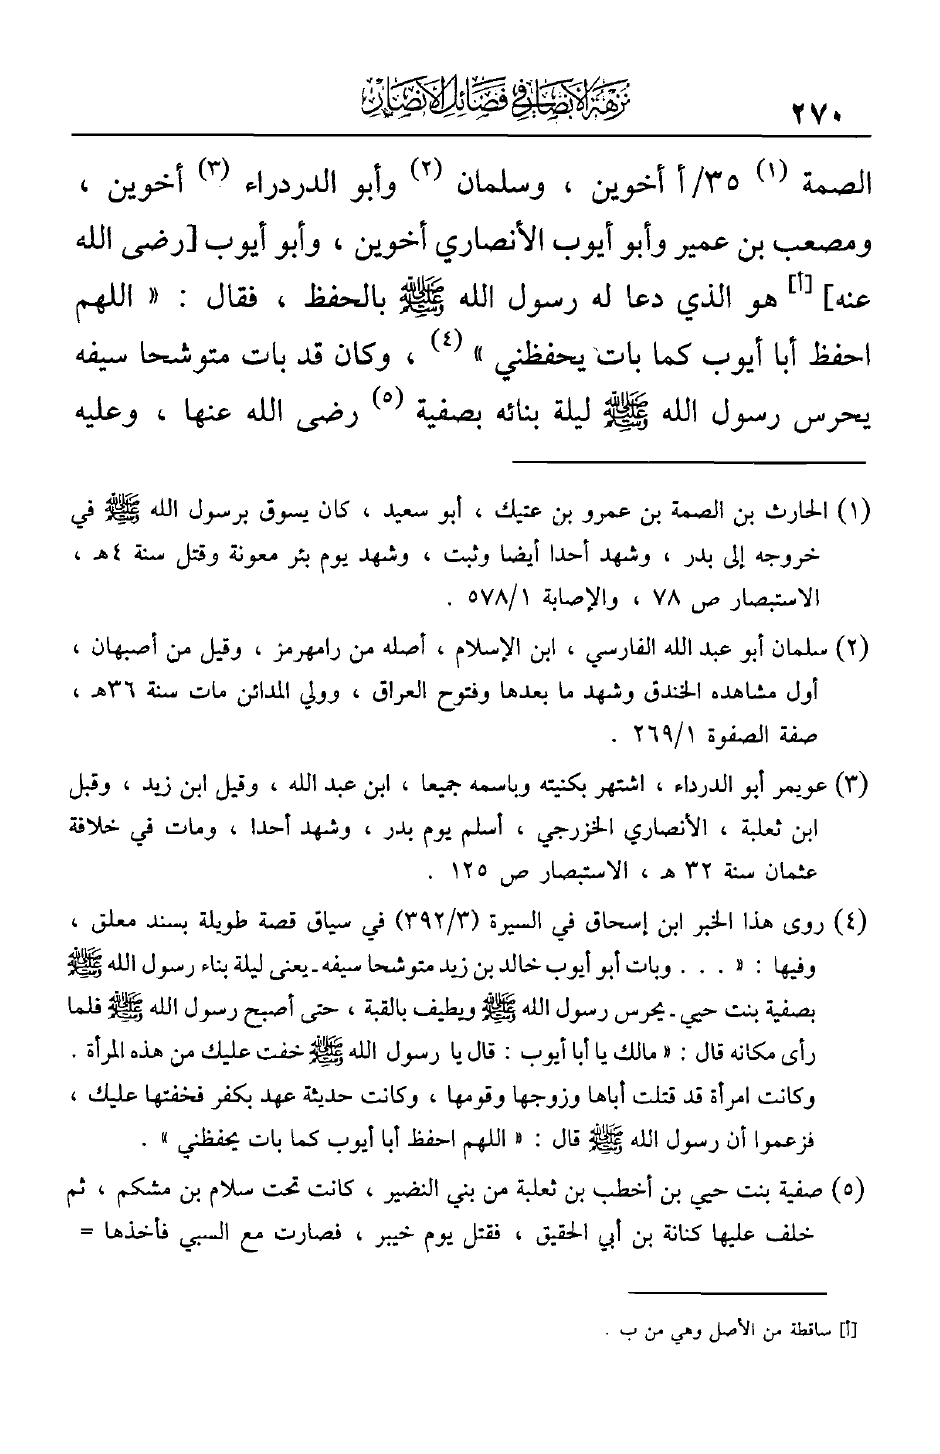 ٢٧٠
نزهة الأبصار في فضائل الأنصار
الصمة (١) ٣٥/أ أخوين ، وسلمان (٢) وأبو الدرداء (٣) أخوين ،
ومصعب بن عمير وأبو أيوب الأنصاري أخوين ، وأبو أيوب [رضى الله
عنه] [أ] هو الذي دعا له رسول الله ﷺ بالحفظ ، فقال : « اللهم
احفظ أبا أيوب كما بات يحفظني » (٤) ، وكان قد بات متوشحا سيفه
يحرس رسول الله ﷺ ليلة بنائه بصفية (٥) رضى الله عنها ، وعليه
(١) الحارث بن الصمة بن عمرو بن عتيك ، أبو سعيد ، كان يسوق برسول الله ﷺ في
خروجه إلى بدر ، وشهد أحدا أيضا وثبت ، وشهد يوم بئر معونة وقتل سنة ٤هـ ،
الاستبصار ص ٧٨ ، والإصابة ٥٧٨/١ .
(٢) سلمان أبو عبد الله الفارسي ، ابن الإسلام ، أصله من رامهرمز ، وقيل من أصبهان ،
أول مشاهده الخندق وشهد ما بعدها وفتوح العراق ، وولي المدائن مات سنة ٣٦هـ ،
صفة الصفوة ٢٦٩/١ .
(٣) عويمر أبو الدرداء ، اشتهر بكنيته وباسمه جميعا ، ابن عبد الله ، وقيل ابن زيد ، وقبل
ابن ثعلبة ، الأنصاري الخزرجي ، أسلم يوم بدر ، وشهد أحدا ، ومات في خلافة
عثمان سنة ٣٢ هـ ، الاستبصار ص ١٢٥ .
(٤) روى هذا الخبر ابن إسحاق في السيرة (٣٩٢/٣) في سياق قصة طويلة بسند معلق ،
وفيها : « . . . وبات أبو أيوب خالد بن زيد متوشحا سيفه ـ يعنى ليلة بناء رسول الله ﷺ
بصفية بنت حيي ـ يحرس رسول الله ﷺ ويطيف بالقبة ، حتى أصبح رسول الله ﷺ فلما
رأى مكانه قال : « مالك يا أبا أيوب : قال يا رسول الله ﷺ خفت عليك من هذه المرأة .
وكانت امرأة قد قتلت أباها وزوجها وقومها ، وكانت حديثة عهد بكفر فخفتها عليك ،
فزعموا أن رسول الله ﷺ قال : « اللهم احفظ أبا أيوب كما بات يحفظني » .
(٥) صفية بنت حيي بن أخطب بن ثعلبة من بني النضير ، كانت تحت سلام بن مشكم ، ثم
خلف عليها كنانة بن أبي الحقيق ، فقتل يوم خيبر ، فصارت مع السبي فأخذها =
[أ] ساقطة من الأصل وهي من ب .